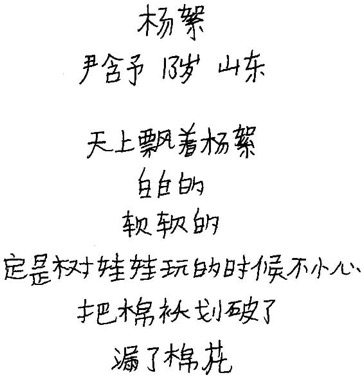 杨絮
尹含予 13岁 山东
天上飘着杨絮
白白的
软软的
定是树娃娃玩的时候不小心
把棉袄划破了
漏了棉花